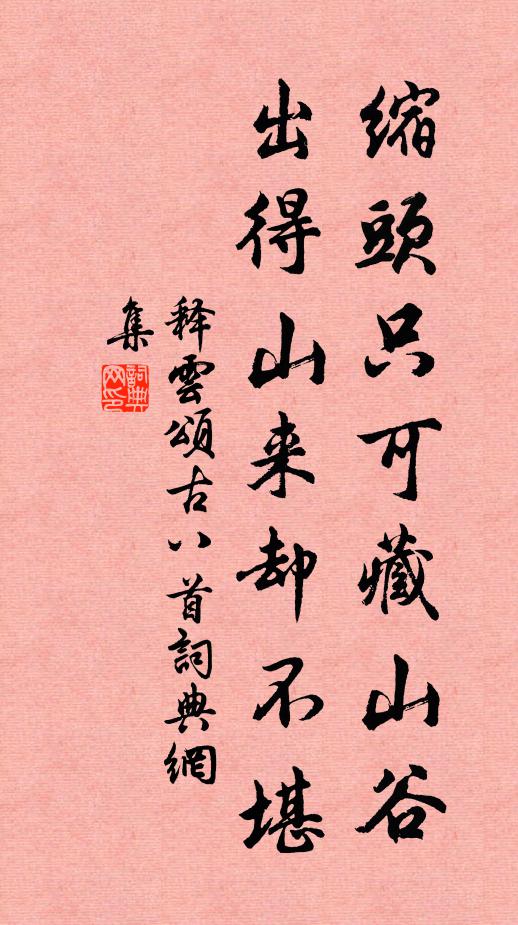 缩頭只可藏山谷
出得山来却不堪
释雲頌古八首詞典網
集
詞典網印